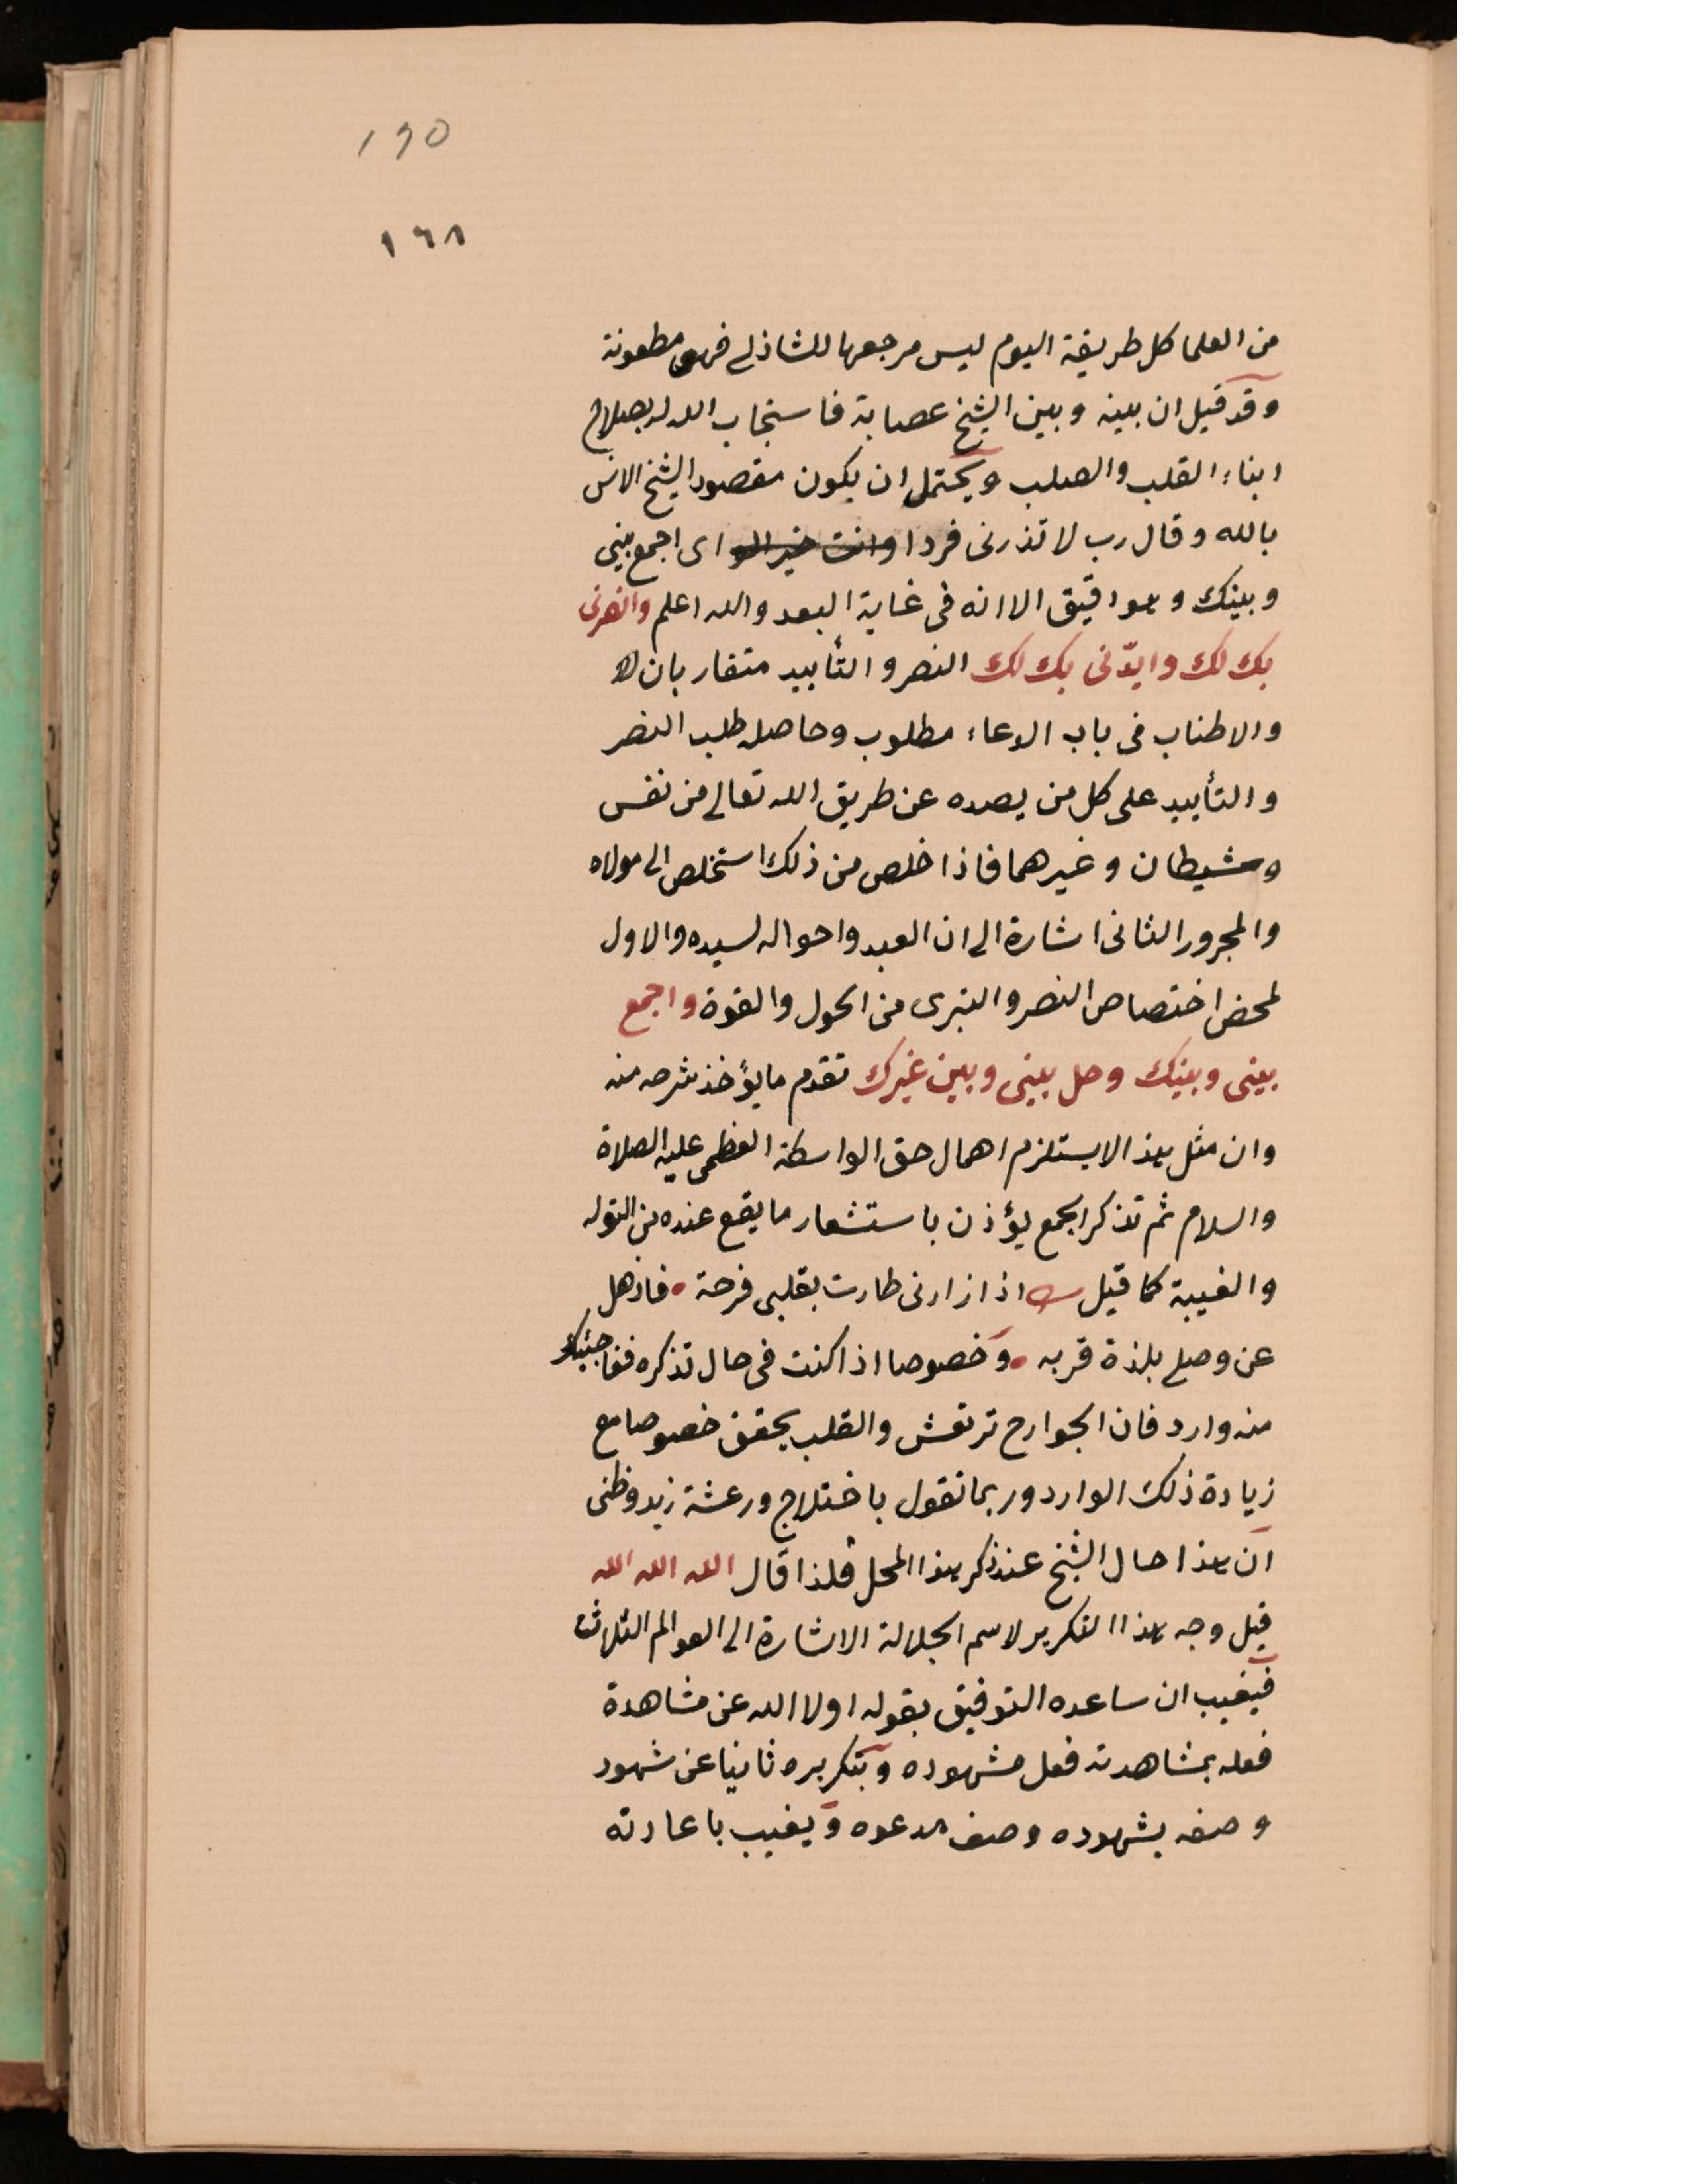 190
١٦٨
من العلما كل طريقة اليوم ليس مرجعها للشاذلى فهى مطعونة
وقد قيل ان بينه وبين الشيخ عصابة فاستجاب الله له بصلاح
ابناء القلب والصلب ويحتمل ان يكون مقصود الشيخ الانس
بالله وقال رب لا تذرنى فردا وانت خير الو اى اجمع بينى
وبينك وهو دقيق الا انه فى غاية البعد والله اعلم وانصرنى
بك لك وايدنى بك لك النصر والتأييد متقاربان
والاطناب فى باب الدعاء مطلوب وحاصله طلب النصر
والتأييد على كل من يصده عن طريق الله تعالى من نفس
وشيطان وغيرهما فاذا خلص من ذلك استخلص الى مولاه
والمجرور الثانى اشارة الى ان العبد واحواله لسيده والاول
لمحض اختصاص النصر والتبرى من الحول والقوة واجمع
بينى وبينك وحل بينى وبين غيرك تقدم ما يؤخذ شرحه منه
وان مثل هذا لا يستلزم اهمال حق الواسطة العظمى عليه الصلاة
والسلام ثم تذكر الجمع يؤذن باستشعار ما يقع عنده من التوله
والغيبة كما قيل اذا زارنى طارت بقلبى فرحة فاذهل
عن وصلى بلذة قربه وخصوصا اذا كنت فى حال تذكره ففاجئك
منه وارد فان الجوارح ترتعش والقلب يخفق خصوصا مع
زيادة ذلك الوارد وربما تقول باختلاج ورعشة زيد وظنى
ان هذا حال الشيخ عند ذكر هذا المحل فلذا قال الله الله الله
قيل وجه هذا التكرير لاسم الجلالة الاشارة الى العوالم الثلاث
فيغيب ان ساعده التوفيق بقوله اولا الله عن مشاهدة
فعله بمشاهدته فعل مشهوده وبتكريره ثانيا عن شهود
وصفه بشهوده وصف مدعوه ويغيب باعادته